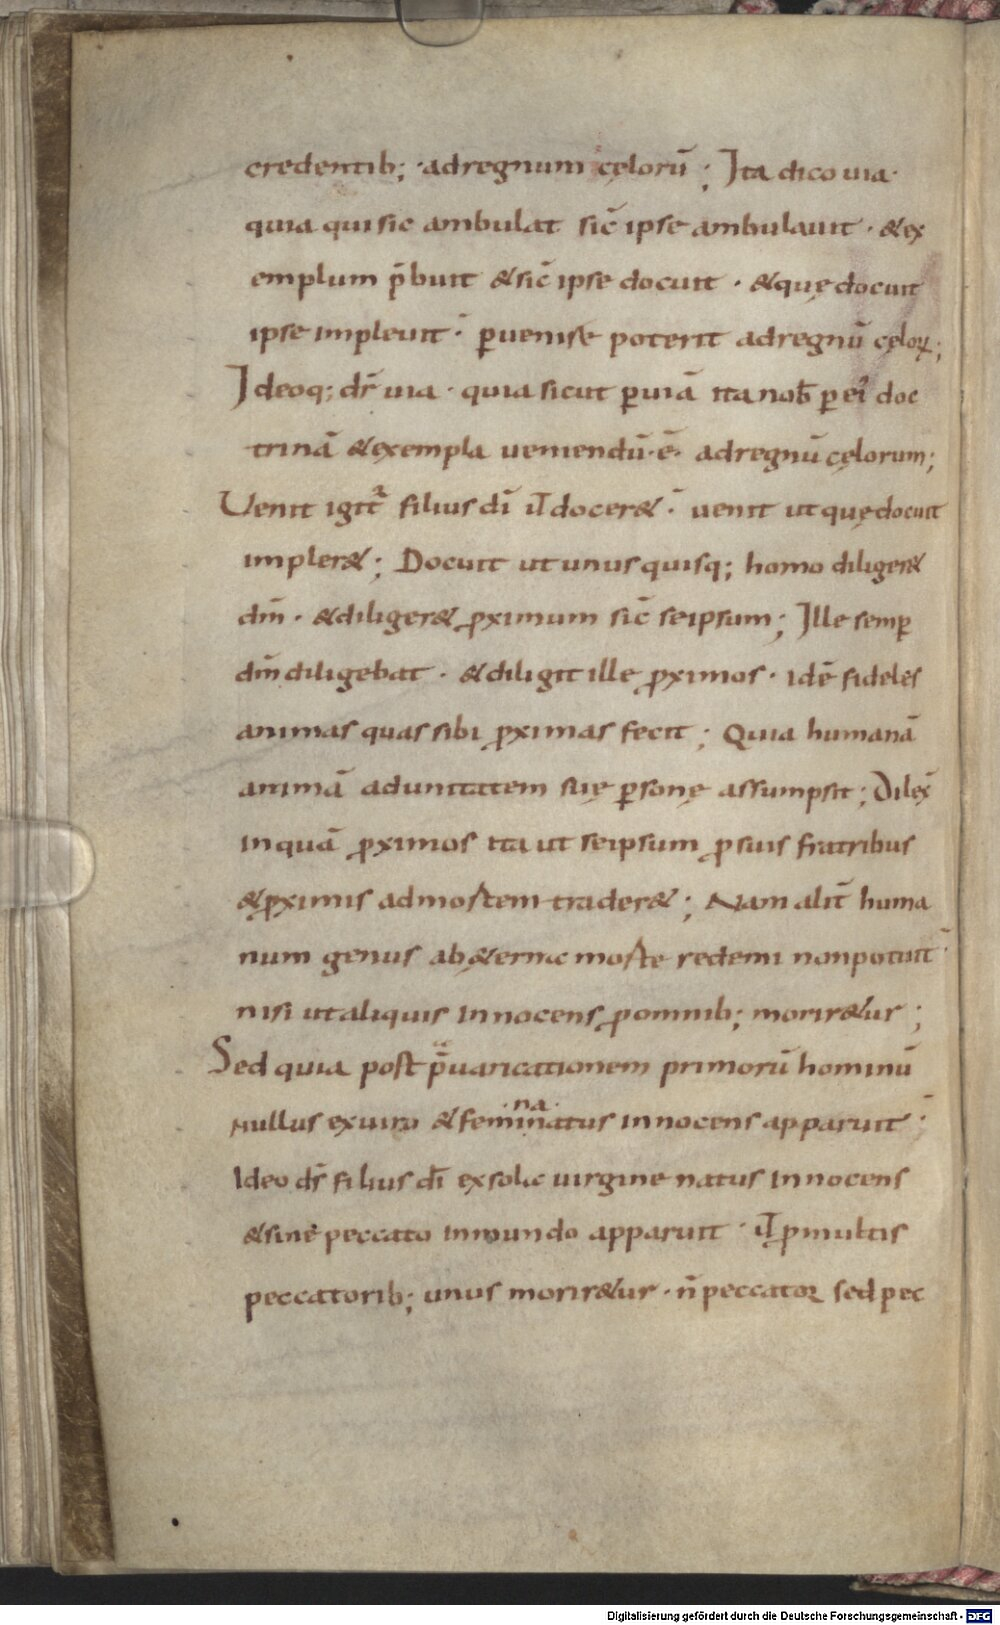 credentib; · adregnum cęlorū ; Ita dico uia ·
quia qui sic ambulat sic̄ ipse ambulauit · & ex
emplum p̄buit & sic̄ ipse docuit · & quę docuit
ipse impleuit · ꝑuenire poterit adregnū cęloꝝ ;
Ideoq; dr̄ uia · quia sicut ꝑ uiā ita nob̄ ꝑ ei' doc
trinā & exempla ueniendū · ē · adregnū cęlorum ;
Uenit igit̄ filius dī ut docer& · uenit ut quę docuit
impler& ; Docuit ut unusquisq; homo diliger&
dm̄ · & diliger& ꝓximum sic̄ seipsum ; Ille semꝑ
dm̄ diligebat · & diligit ille ꝓximos · idē fideles
animas quas sibi ꝓximas fecit ; Quia humanā
animā adunitatem suę ꝑsonę assumpsit ; Dilex̄
inquā ꝓximos ita ut seipsum ꝓ suis fratribus
& ꝓximis admortem trader& ; Nam alit̄ huma
num genus ab &erna morte redemi non potuit
nisi ut aliquis innocens ꝓ omnib; morir&ur ;
Sed quia post p̄uaricationem primorū hominū
nullus ex uiro & femina natus innocens apparuit ·
Ideo ds̄ filius dī ex sola uirgine natus innocens
& sine peccato inmundo apparuit · ut ꝓ multis
peccatorib; unus morir&ur · n̄ peccator sed pec